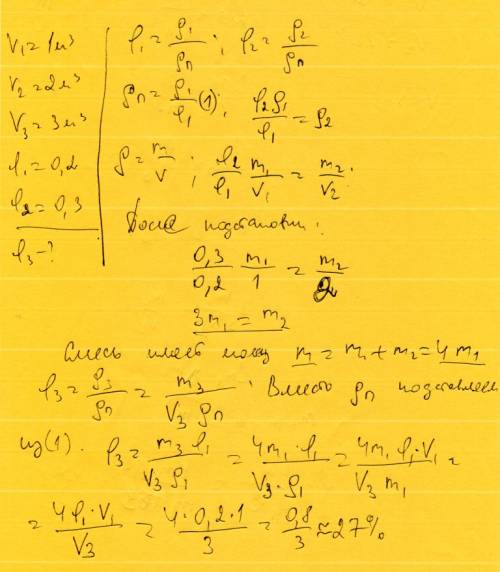 V₁ = 1 м³
V₂ = 2 м³
V₃ = 3 м³
φ₁ = 0,2
φ₂ = 0,3
φ₃ - ?
φ₁ = ρ₁/ρп ; φ₂ = ρ₂/ρп
ρп = ρ₁/φ₁ (1) ; φ₂ρ₁/φ₁ = ρ₂
ρ = m/V ; φ₂/φ₁ m₁/V₁ = m₂/V₂ .
После подстановки :
0,3/0,2 m₁/1 = m₂/2
3m₁ = m₂
Смесь имеет массу m = m₁ + m₂ = 4m₁
φ₃ = ρ₃/ρп = m₃/V₃ρп . Вместо ρп подставляем
из (1). φ₃ = m₃φ₁/V₃ρ₁ = 4m₁·φ₁/V₃·ρ₁ = 4m₁φ₁·V₁/V₃m₁ =
= 4φ₁·V₁/V₃ = 4·0,2·1/3 = 0,8/3 ≈ 27%